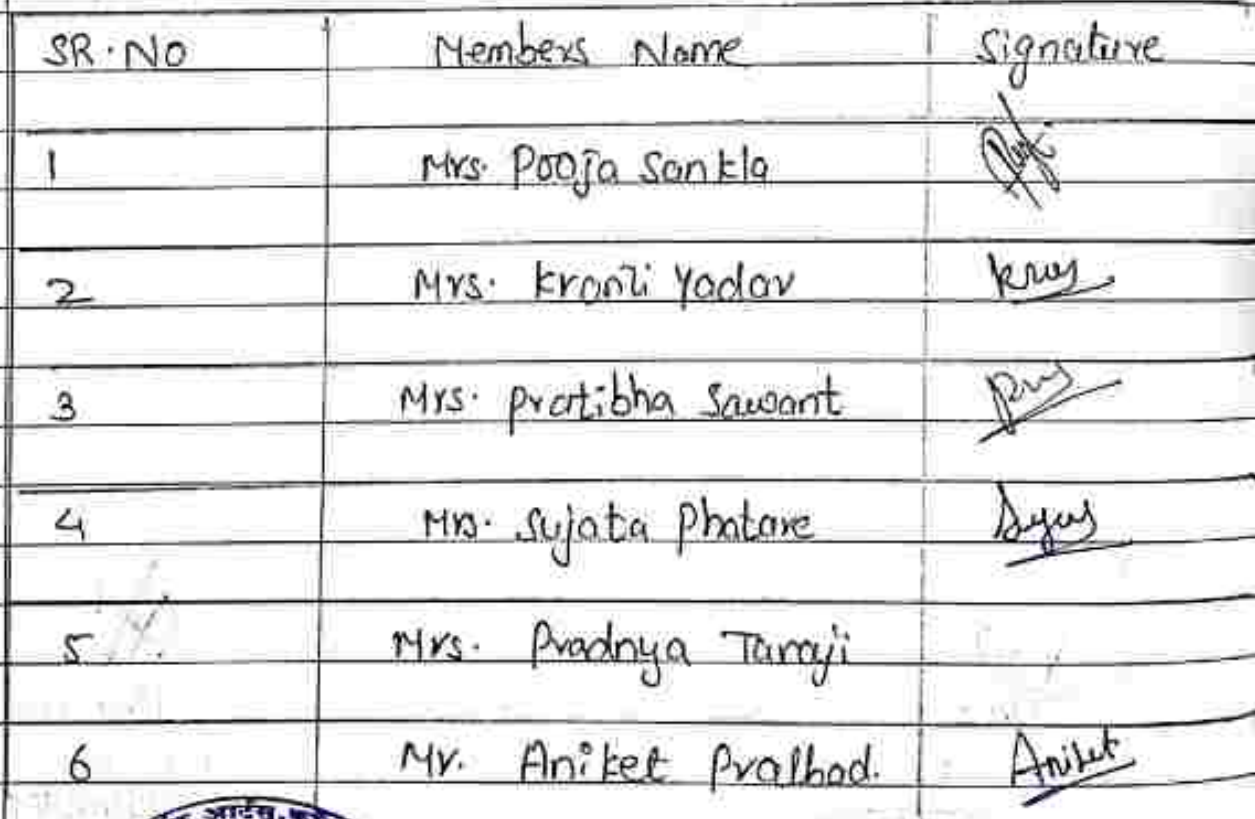 SR. NO Members Name Signature
1 Mrs. Pooja Sankla
2 Mrs. Kranti Yadav
3 Mrs. Pratibha Sawant
4 Mrs. Sujata Phatare
5 Mrs. Pradnya Taraji
6 Mr. Aniket Pralhad. Aniket
आर्टस्,